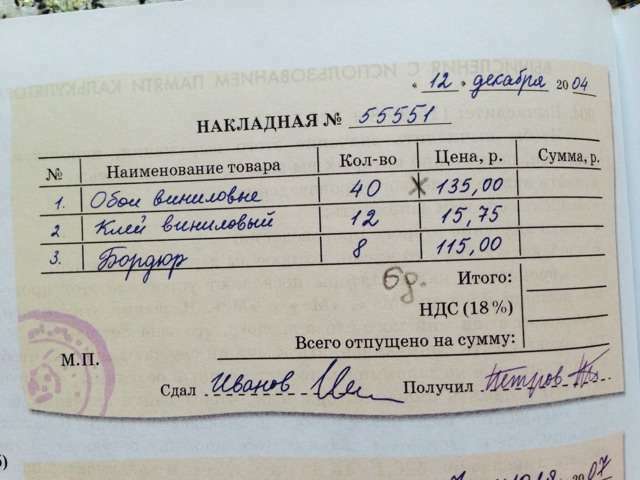 ВЫЧИСЛЕНИЯ С ИСПОЛЬЗОВАНИЕМ ПАМЯТИ КАЛЬКУЛЯТОР
« 12 » декабря 2004
НАКЛАДНАЯ № 55551
№ Наименование товара Кол-во Цена, р. Сумма, р.
1. Обои виниловые 40 × 135,00
2 Клей виниловый 12 15,75
3. Бордюр 8 115,00
бр. Итого:
НДС (18%)
Всего отпущено на сумму:
М.П.
Сдал Иванов Получил Петров
б)
2007